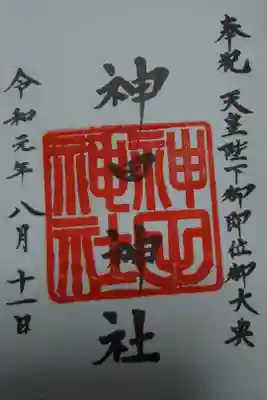 奉祝 天皇陛下御即位御大典
神田神社
神田神社
令和元年 八月 十一日